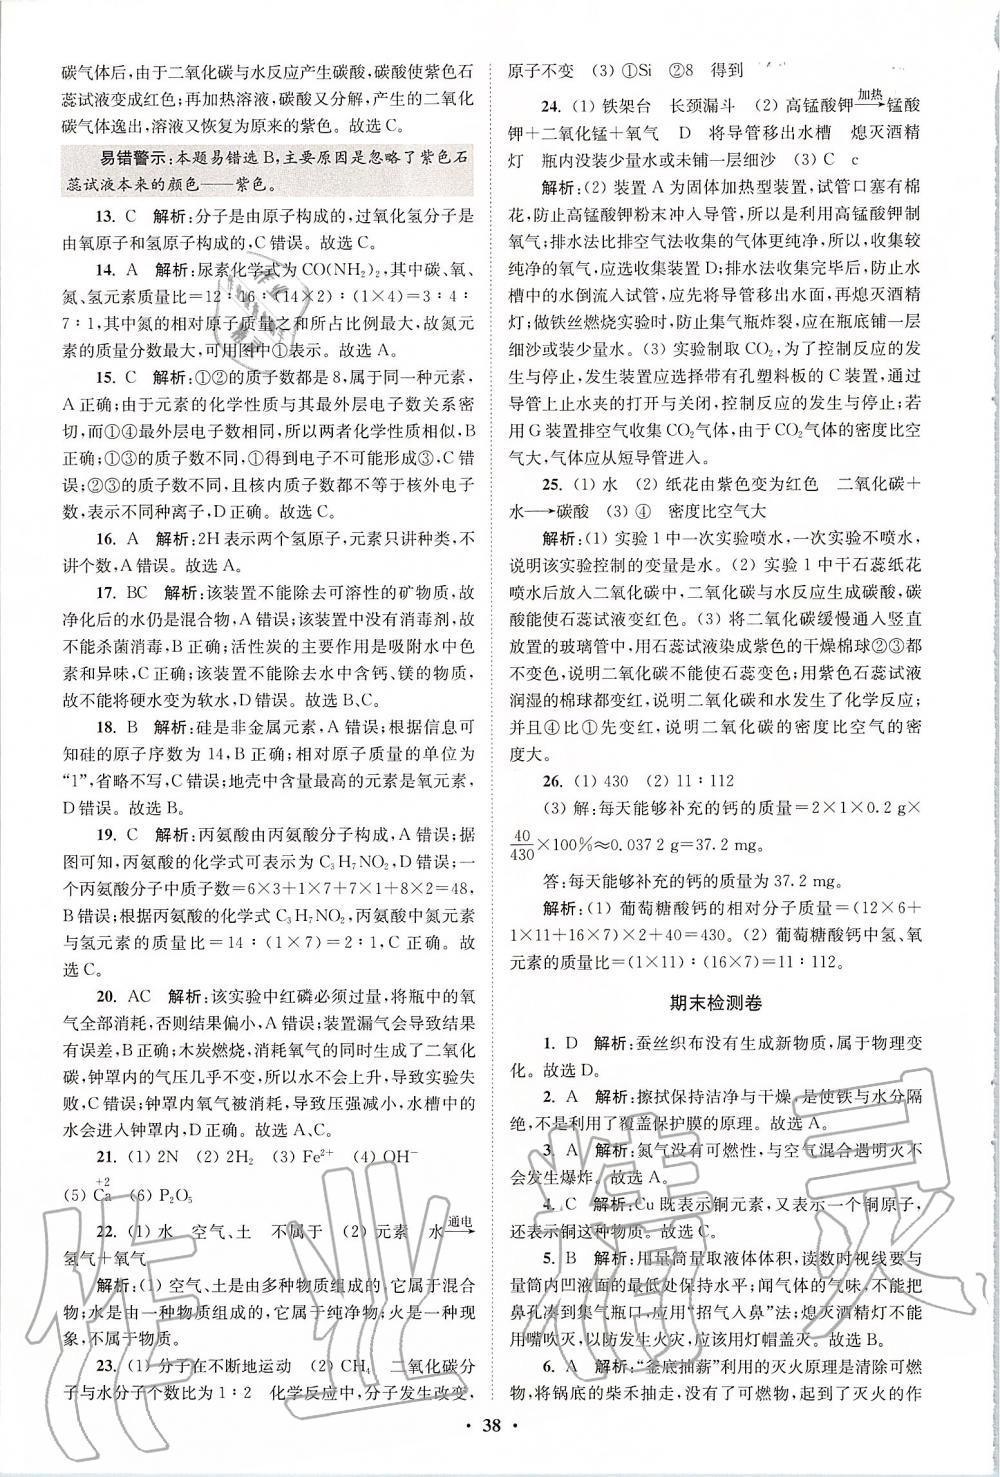 碳气体后,由于二氧化碳与水反应产生碳酸,碳酸使紫色石
蕊试液变成红色;再加热溶液,碳酸又分解,产生的二氧化
碳气体逸出,溶液又恢复为原来的紫色。故选C。
易错警示:本题易错选B,主要原因是忽略了紫色石
蕊试液本来的颜色——紫色。
13. C 解析:分子是由原子构成的,过氧化氢分子是
由氧原子和氢原子构成的,C错误。故选C。
14. A 解析:尿素化学式为CO(NH₂)₂,其中碳、氧、
氮、氢元素质量比=12∶16∶(14×2)∶(1×4)=3∶4∶
7∶1,其中氮的相对原子质量之和所占比例最大,故氮元
素的质量分数最大,可用图中①表示。故选A。
15. C 解析:①②的质子数都是8,属于同一种元素,
A正确;由于元素的化学性质与其最外层电子数关系密
切,而①④最外层电子数相同,所以两者化学性质相似,B
正确;①③的质子数不同,①得到电子不可能形成③,C错
误;②③的质子数不同,且核内质子数都不等于核外电子
数,表示不同种离子,D正确。故选C。
16. A 解析:2H表示两个氢原子,元素只讲种类,不
讲个数,A错误。故选A。
17. BC 解析:该装置不能除去可溶性的矿物质,故
净化后的水仍是混合物,A错误;该装置中没有消毒剂,故
不能杀菌消毒,B正确;活性炭的主要作用是吸附水中色
素和异味,C正确;该装置不能除去水中含钙、镁的物质,
故不能将硬水变为软水,D错误。故选B、C。
18. B 解析:硅是非金属元素,A错误;根据信息可
知硅的原子序数为14,B正确;相对原子质量的单位为
“1”,省略不写,C错误;地壳中含量最高的元素是氧元素,
D错误。故选B。
19. C 解析:丙氨酸由丙氨酸分子构成,A错误;据
图可知,丙氨酸的化学式可表示为C₃H₇NO₂,D错误;一
个丙氨酸分子中质子数=6×3+1×7+7×1+8×2=48,
B错误;根据丙氨酸的化学式C₃H₇NO₂,丙氨酸中氮元素
与氢元素的质量比=14∶(1×7)=2∶1,C正确。故
选C。
20. AC 解析:该实验中红磷必须过量,将瓶中的氧
气全部消耗,否则结果偏小,A错误;装置漏气会导致结果
有误差,B正确;木炭燃烧,消耗氧气的同时生成了二氧化
碳,钟罩内的气压几乎不变,所以水不会上升,导致实验失
败,C错误;钟罩内氧气被消耗,导致压强减小,水槽中的
水会进入钟罩内,D正确。故选A、C。
21. (1) 2N (2) 2H₂ (3) Fe²⁺ (4) OH⁻
+2
(5) Ca (6) P₂O₅
22. (1) 水 空气、土 不属于 (2) 元素 水 通电⟶
氢气+氧气
解析:(1) 空气、土是由多种物质组成的,它属于混合
物;水是由一种物质组成的,它属于纯净物;火是一种现
象,不属于物质。
23. (1) 分子在不断地运动 (2) CH₄ 二氧化碳分
子与水分子个数比为1∶2 化学反应中,分子发生改变,
原子不变 (3) ①Si ②8 得到
24. (1) 铁架台 长颈漏斗 (2) 高锰酸钾 加热⟶ 锰酸
钾+二氧化锰+氧气 D 将导管移出水槽 熄灭酒精
灯 瓶内没装少量水或未铺一层细沙 (3) C c
解析:(2) 装置A为固体加热型装置,试管口塞有棉
花,防止高锰酸钾粉末冲入导管,所以是利用高锰酸钾制
氧气;排水法比排空气法收集的气体更纯净,所以,收集较
纯净的氧气,应选收集装置D;排水法收集完毕后,防止水
槽中的水倒流入试管,应先将导管移出水面,再熄灭酒精
灯;做铁丝燃烧实验时,防止集气瓶炸裂,应在瓶底铺一层
细沙或装少量水。(3) 实验制取CO₂,为了控制反应的发
生与停止,发生装置应选择带有孔塑料板的C装置,通过
导管上止水夹的打开与关闭,控制反应的发生与停止;若
用G装置排空气收集CO₂气体,由于CO₂气体的密度比空
气大,气体应从短导管进入。
25. (1) 水 (2) 纸花由紫色变为红色 二氧化碳+
水⟶碳酸 (3) ④ 密度比空气大
解析:(1) 实验1中一次实验喷水,一次实验不喷水,
说明该实验控制的变量是水。(2) 实验1中石蕊纸花
喷水后放入二氧化碳中,二氧化碳与水反应生成碳酸,碳
酸能使石蕊试液变红色。(3) 将二氧化碳缓慢通入竖直
放置的玻璃管中,用石蕊试液染成紫色的干燥棉球②③都
不变色,说明二氧化碳不能使石蕊变色;用紫色石蕊试液
润湿的棉球都变红,说明二氧化碳和水发生了化学反应;
并且④比①先变红,说明二氧化碳的密度比空气的密
度大。
26. (1) 430 (2) 11∶112
(3) 解:每天能够补充的钙的质量=2×1×0.2 g×
40/430×100%≈0.037 2 g=37.2 mg。
答:每天能够补充的钙的质量为37.2 mg。
解析:(1) 葡萄糖酸钙的相对分子质量=(12×6+
1×11+16×7)×2+40=430。(2) 葡萄糖酸钙中氢、氧
元素的质量比=(1×11)∶(16×7)=11∶112。
期末检测卷
1. D 解析:蚕丝织布没有生成新物质,属于物理变
化。故选D。
2. A 解析:擦拭保持洁净与干燥,是使铁与水分隔
绝,不是利用了覆盖保护膜的原理。故选A。
3. A 解析:氮气没有可燃性,与空气混合遇明火不
会发生爆炸。故选A。
4. C 解析:Cu既表示铜元素,又表示一个铜原子,
还表示铜这种物质。故选C。
5. B 解析:用量筒量取液体体积,读数时视线要与
量筒内凹液面的最低处保持水平;闻气体的气味,不能把
鼻孔凑到集气瓶口,应用“招气入鼻”法;熄灭酒精灯不能
用嘴吹灭,以防发生火灾,应该用灯帽盖灭。故选B。
6. A 解析:“釜底抽薪”利用的灭火原理是清除可燃
物,将锅底的柴禾抽走,没有了可燃物,起到了灭火的作
• 38 •
作业精灵